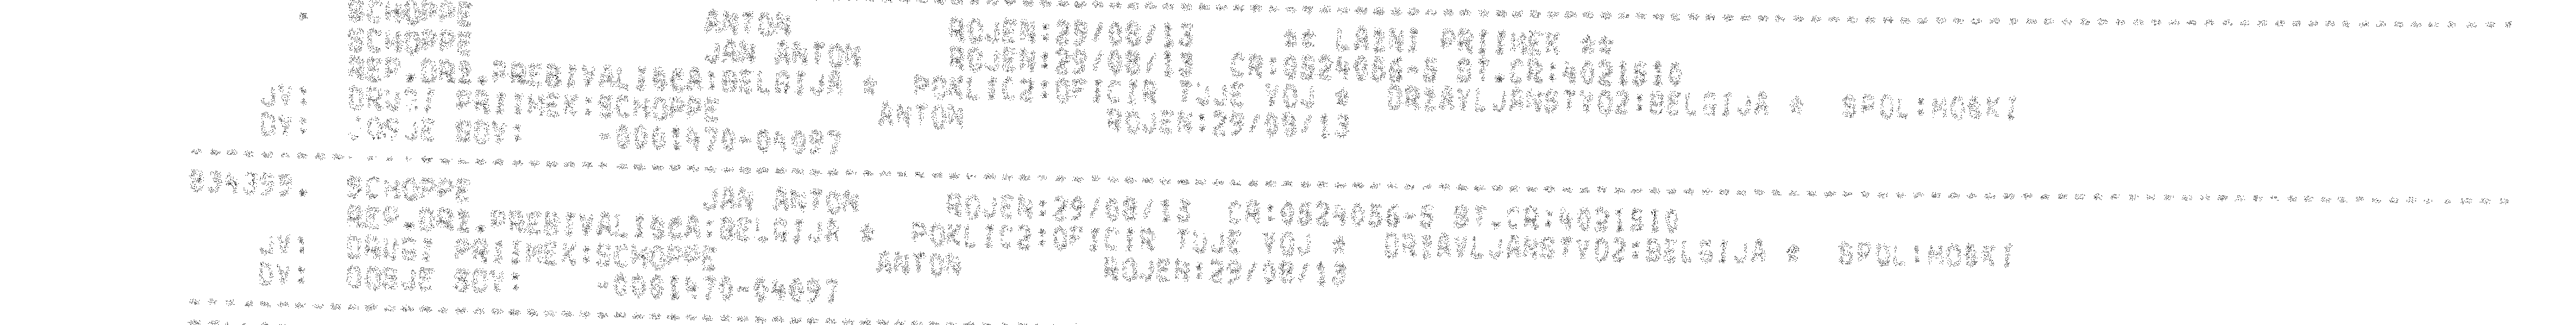 . SCHOPPE ANTON ROJEN:29/08/13 ** LAZNI PRIIMEK **
SCHOPPE JAN ANTON ROJEN:29/08/13 CR:0624086-5 ST.CR:4021510
REP.DRZ.PREBIVALISCA:BELGIJA * POKLIC2:OFICIR TUJE VOJ * DRZAVLJANSTVO2:BELGIJA * SPOL:MOSKI
JV: DRUGI PRIIMEK:SCHOPPE ANTON ROJEN:29/08/13
DV: DOSJE SDV: -0001470-04097
834359. SCHOPPE JAN ANTON ROJEN:29/08/13 CR:0624086-5 ST.CR:4021510
REP.DRZ.PREBIVALISCA:BELGIJA * POKLIC2:OFICIR TUJE VOJ * DRZAVLJANSTVO2:BELGIJA * SPOL:MOSKI
JV: DRUGI PRIIMEK:SCHOPPE ANTON ROJEN:29/08/13
DV: DOSJE SDV: -0001470-04097